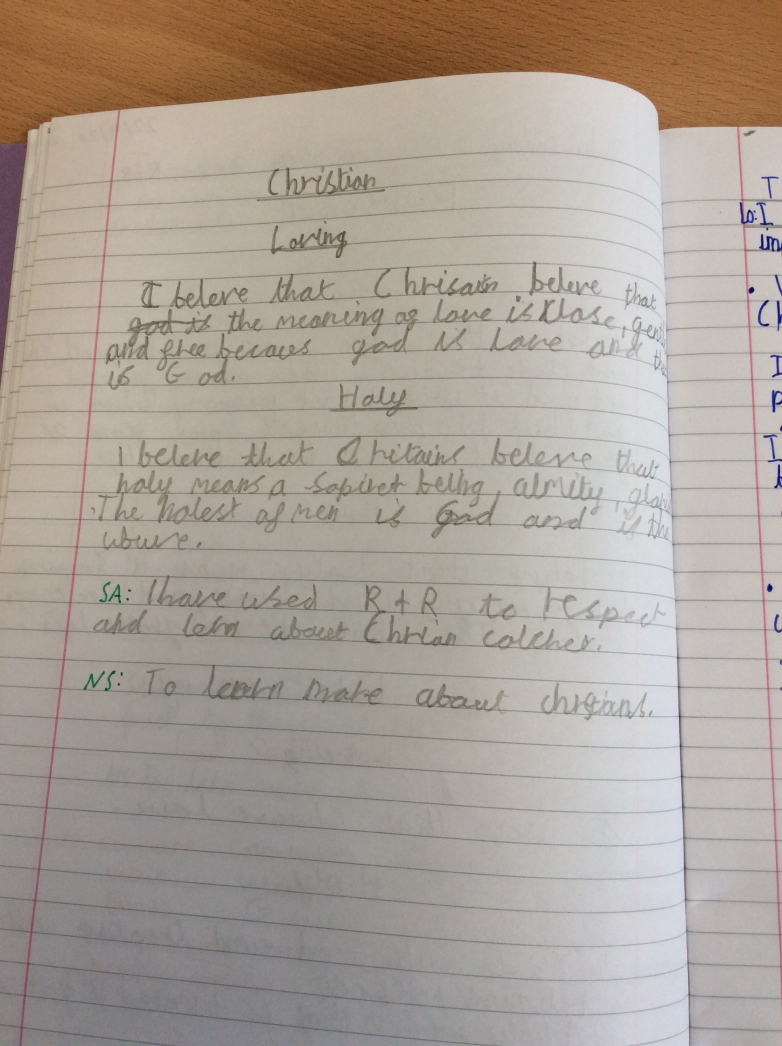 Christian
Loving
I beleve that Chrisain beleve that
god is the meaning of love is klose,
and free becaues god is love and
is God.
Holy
I beleve that Chitains beleve that
holy means a sapiret being, almity,
The holest of men is God and is the
SA: I have used R+R to respect
and lern about Chrian colcher.
NS: To learn more about chrstians.
T
Lo: I
I